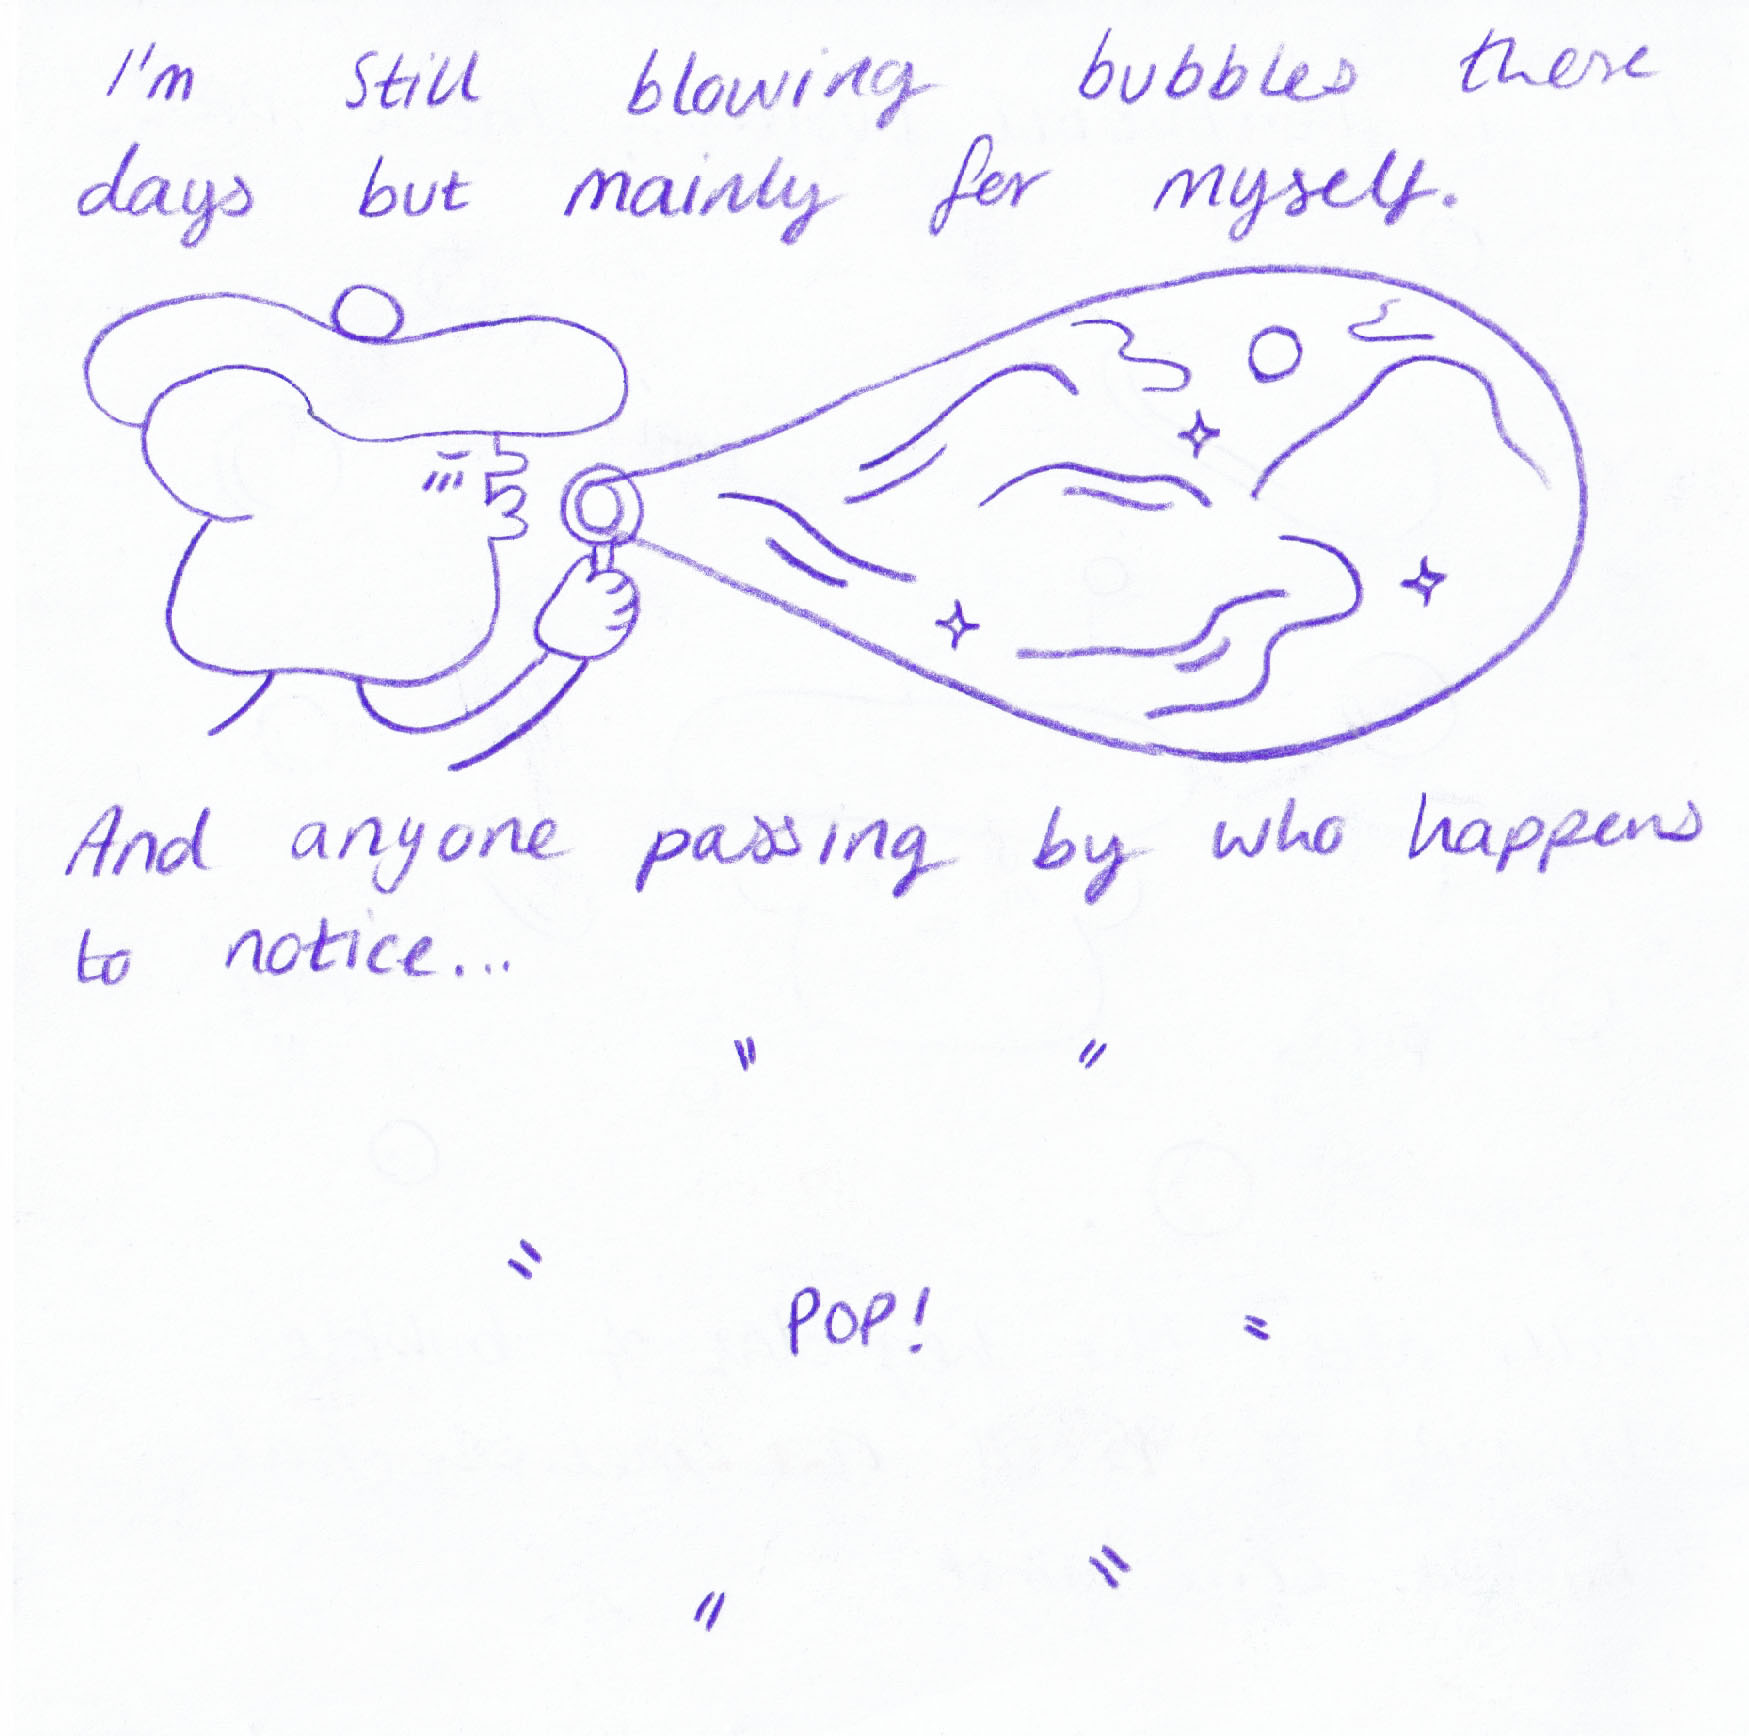 I'm still blowing bubbles these
days but mainly for myself.
And anyone passing by who happens
to notice...
POP!